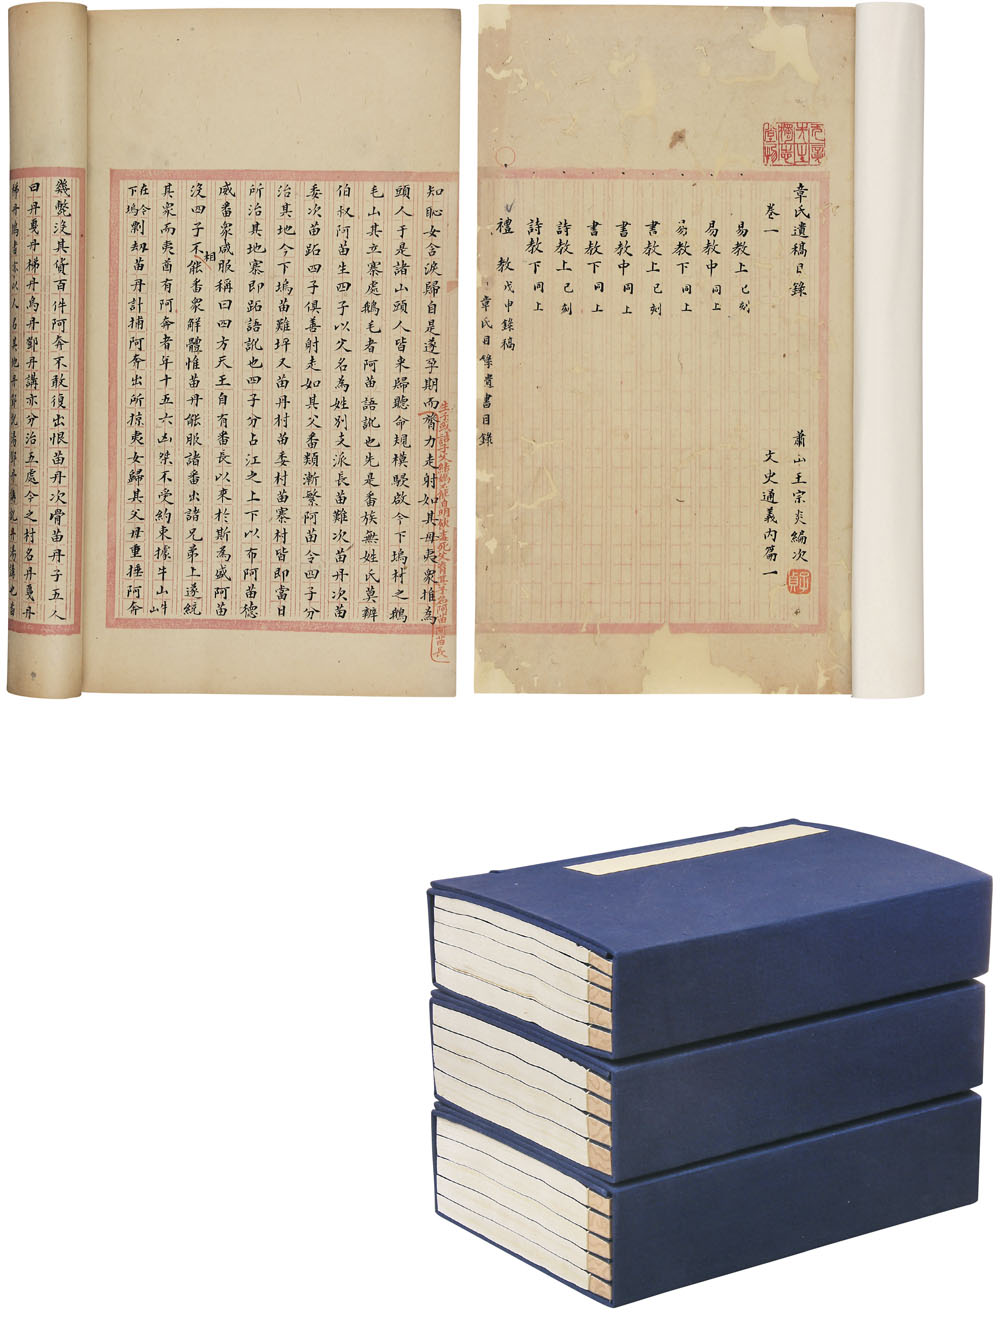 章氏遺稿目錄　蕭山王宗炎編次
卷一　文史通義內篇一
易教上 已刻
易教中 同上
易教下 同上
書教上 已刻
書教中 同上
書教下 同上
詩教上 已刻
詩教下 同上
禮教 戊申錄稿
章氏目錄遺書目錄
知恥女含淚歸自是遂孕期而膂力走射如其母夷衆推為
頭人于是諸山頭人皆來歸聽命規模駸啟今下塢村之鵝
毛山其立寨處鵝毛者阿苗語訛也先是番族無姓氏莫辨
伯叔阿苗生四子以父名為姓別支派長苗難次苗丹次苗
委次苗跖四子俱善射走如其父番類漸繁阿苗令四子分
治其地今下塢苗難坪又苗丹村苗委村苗寨村皆即當日
所治其地寨即跖語訛也四子分占江之上下以布阿苗德
威番衆咸服稱曰四方天王自有番長以來於斯為盛阿苗
沒四子不相能番衆解體惟苗丹能服諸番出諸兄弟上遂統
其衆而夷酋有阿奔者年十五六凶桀不受約束據牛山牛山
在今下塢剽劫苗丹計捕阿奔出所掠夷女歸其父母重捶阿奔
幾斃沒其貨百件阿奔不敢復出恨苗丹次骨苗丹子五人
曰丹戛丹梯丹鳥丹鄞丹講亦分治五處今之村名丹戛丹